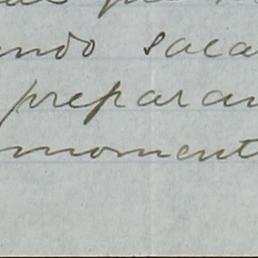 ndo saca
preparan
moment